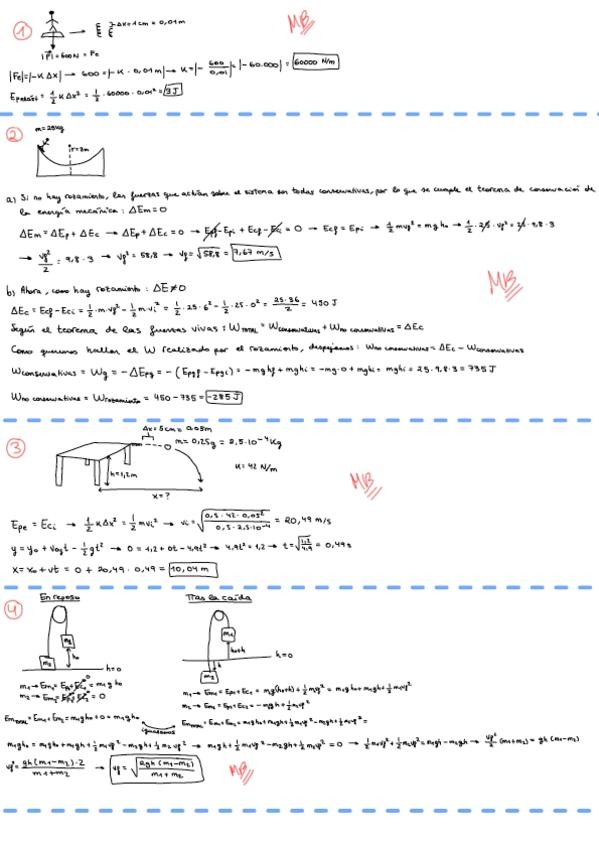 1
Δx = 1 cm = 0,01 m
MB
|P| = 600 N = Fe
|Fe| = |-K Δx| → 600 = |-K · 0,01 m| → K = |- 600/0,01| = |-60.000| = 60000 N/m
Epelást = 1/2 K Δx² = 1/2 · 60000 · 0,01² = 3 J
2
m = 25 kg
r = 3m
a) Si no hay rozamiento, las fuerzas que actúan sobre el sistema son todas conservativas, por lo que se cumple el teorema de conservación de
la energía mecánica: ΔEm = 0
ΔEm = ΔEp + ΔEc → ΔEp + ΔEc = 0 → Epf - Epi + Ecf - Eci = 0 → Ecf = Epi → 1/2 mvf² = mgho → 1/2 · 25 · vf² = 25 · 9,8 · 3
→ vf²/2 = 9,8 · 3 → vf² = 58,8 → vf = √58,8 = 7,67 m/s
MB
b) Ahora, como hay rozamiento: ΔE ≠ 0
ΔEc = Ecf - Eci = 1/2 · m · vf² - 1/2 m · vi² = 1/2 · 25 · 6² - 1/2 · 25 · 0² = 25·36/2 = 450 J
Según el teorema de las fuerzas vivas: WTOTAL = Wconservativas + Wno conservativas = ΔEc
Como queremos hallar el W realizado por el rozamiento, despejamos: Wno conservativas = ΔEc - Wconservativas
Wconservativas = Wg = -ΔEpg = -(Epgf - Epgi) = -mghf + mghi = -mg·0 + mghi = mghi = 25 · 9,8 · 3 = 735 J
Wno conservativas = Wrozamiento = 450 - 735 = -285 J
3
Δx = 5 cm = 0,05 m
m = 0,25 g = 2,5·10⁻⁴ Kg
h = 1,2 m
K = 42 N/m
x = ?
MB
Epe = Eci → 1/2 K Δx² = 1/2 m vi² → vi = √(0,5 · 42 · 0,05² / 0,5 · 2,5·10⁻⁴) = 20,49 m/s
y = yo + voyt - 1/2 gt² → 0 = 1,2 + 0t - 4,9t² → 4,9t² = 1,2 → t = √(1,2/4,9) = 0,49 s
x = xo + vt = 0 + 20,49 · 0,49 = 10,04 m
4
En reposo
Tras la caída
m1
ho
m2
h = 0
m1
ho+h
h = 0
h
m2
m1 → Em1 = Ep1 + Ec1 = m1gho
m1 → Em1 = Ep1 + Ec1 = m1g(ho+h) + 1/2 m1vf² = m1gho + m1gh + 1/2 m1vf²
m2 → Em2 = Ep2 + Ec2 = 0
m2 → Em2 = Ep2 + Ec2 = -m2gh + 1/2 m2vf²
EmTOTAL = Em1 + Em2 = m1gho + 0 = m1gho
igualamos
EmTOTAL = Em1 + Em2 = m1gho + m1gh + 1/2 m1vf² - m2gh + 1/2 m2vf² =
m1gho = m1gho + m1gh + 1/2 m1vf² - m2gh + 1/2 m2vf² → m1gh + 1/2 m1vf² - m2gh + 1/2 m2vf² = 0 → 1/2 m1vf² + 1/2 m2vf² = m1gh - m2gh → vf²/2 (m1+m2) = gh(m1-m2)
vf² = gh(m1-m2)·2 / m1+m2 → vf = √(2gh(m1-m2) / m1+m2)
MB